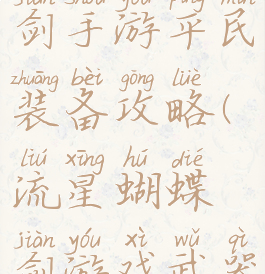 jiàn shǒu yóu píng mín
剑手游平民
zhuāng bèi gōng lüè
装备攻略(
liú xīng hú dié
流星蝴蝶
jiàn yóu xì wǔ qì
剑游戏武器